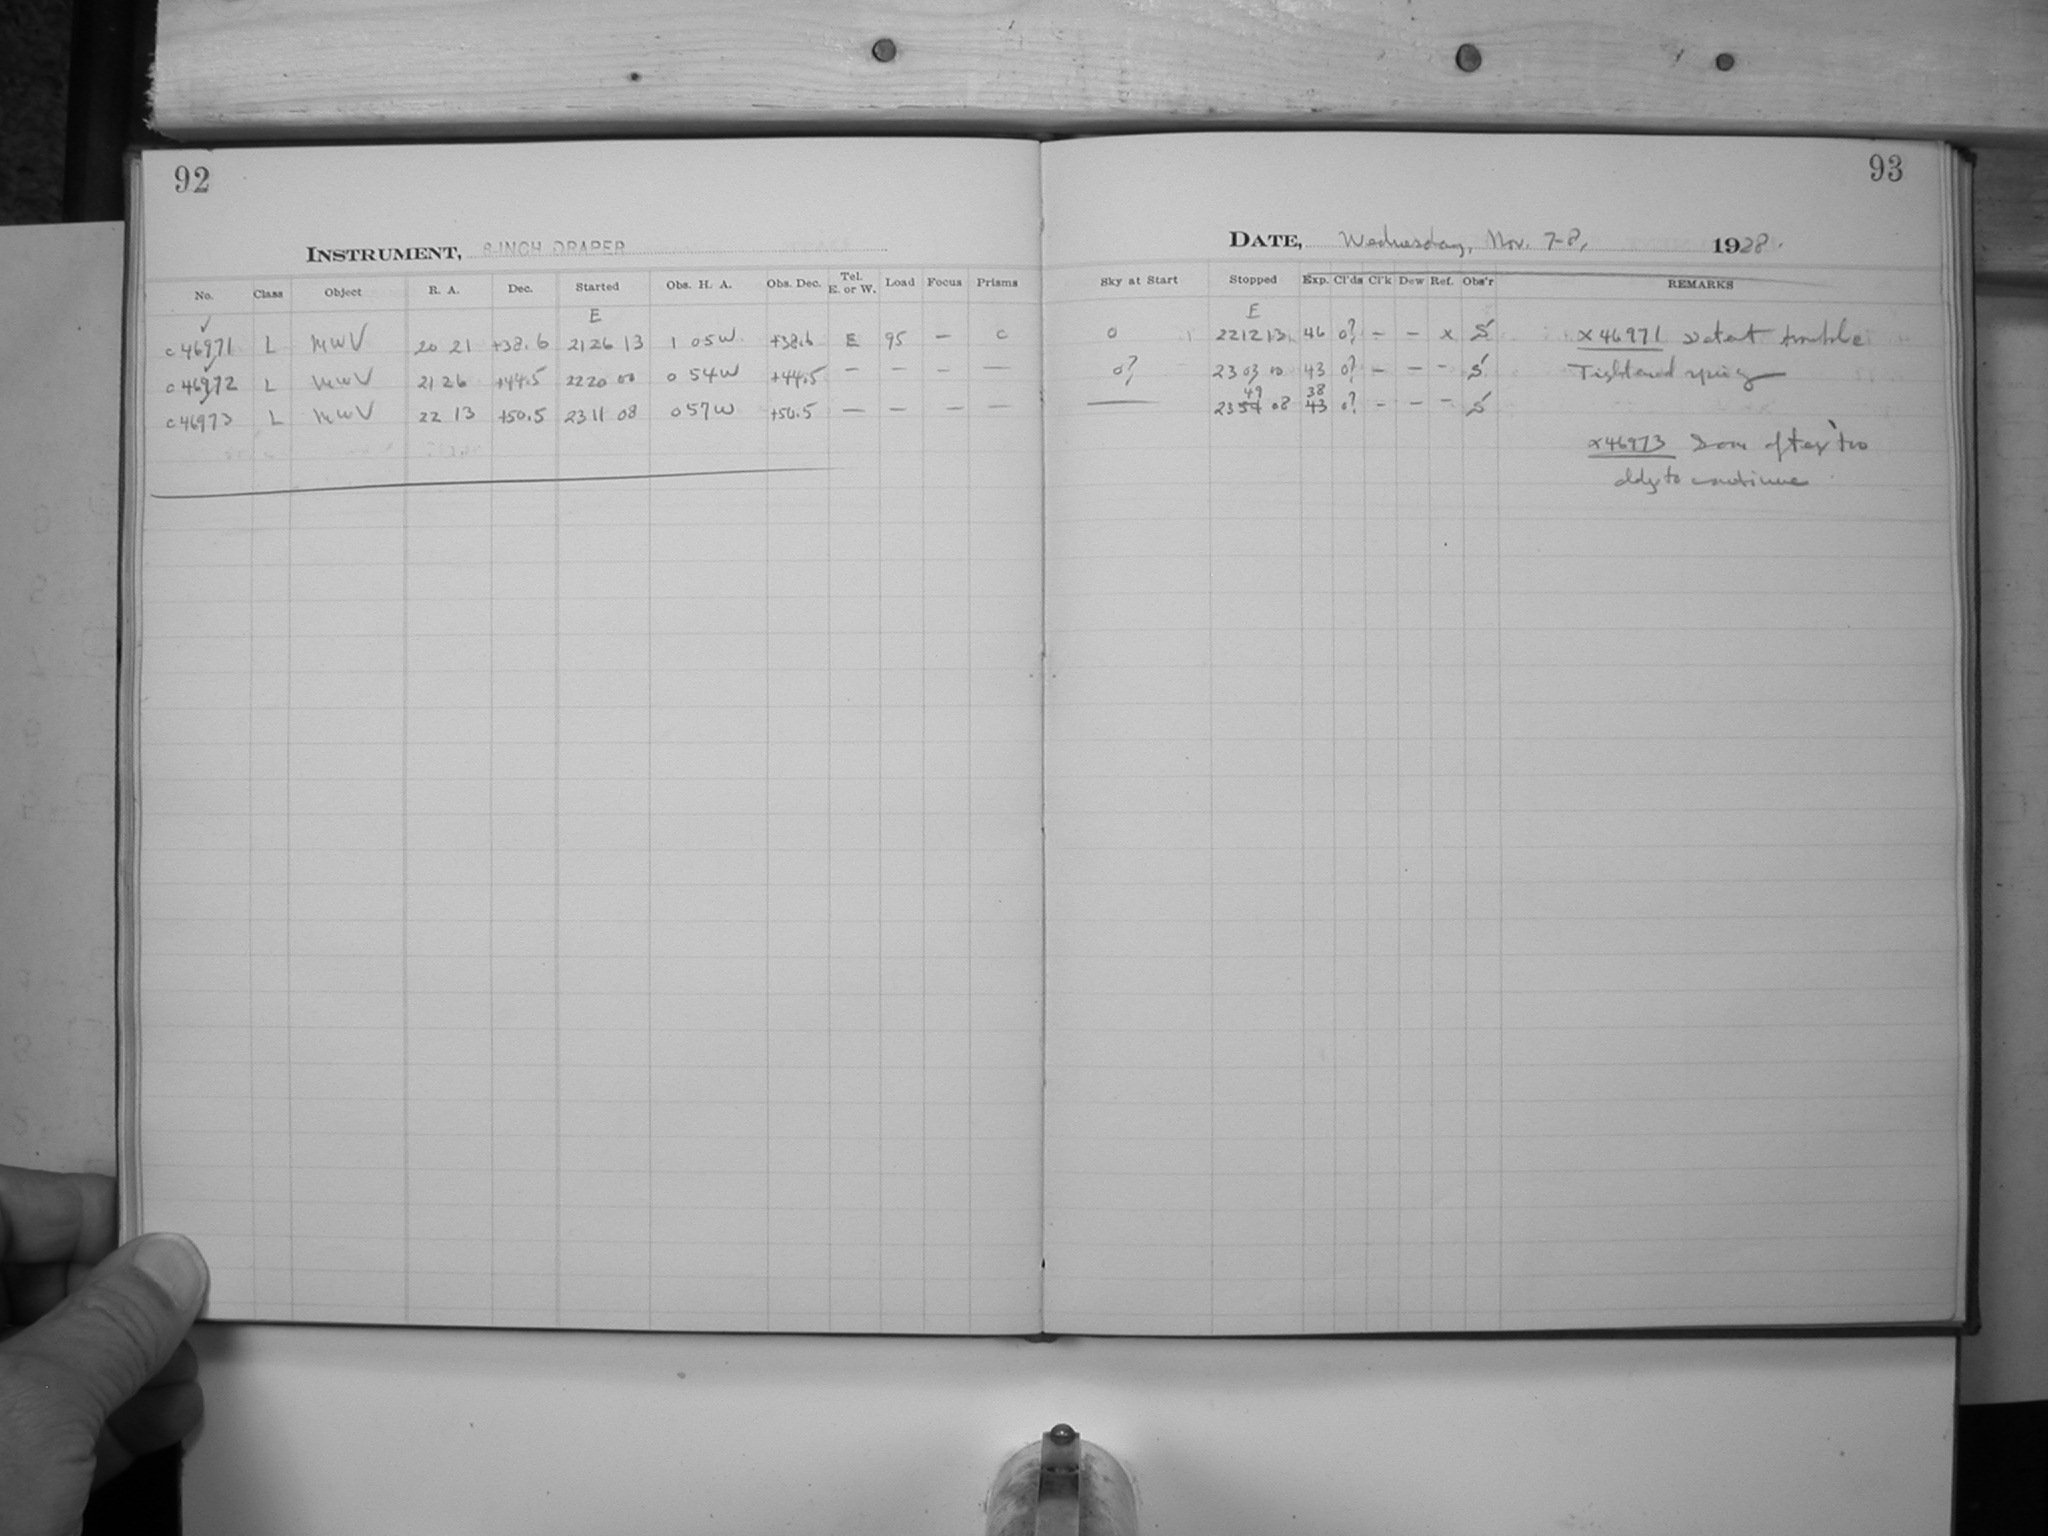 92
INSTRUMENT, 8-INCH DRAPER
No. Class Object R. A. Dec. Started Obs. H. A. Obs. Dec. Tel. E. or W. Load Focus Prisms
E
c46971 L MWV 20 21 +38.6 21 26 13 1 05W +38.6 E 95 — C
c46972 L MWV 21 26 +44.5 22 20 00 0 54W +44.5 — — — —
c46973 L MWV 22 13 +50.5 23 11 08 0 57W +50.5 — — — —
93
DATE, Wednesday, Nov. 7-8, 1928.
Sky at Start Stopped Exp. Cl'ds Cl'k Dew Ref. Obs'r REMARKS
E
0 22 12 13 46 0? — — x S x46971 trouble
0? 23 03 00 43 0? — — — S Tightened spring
49 38
— 23 54 08 43 0? — — — S
x46973 to continue